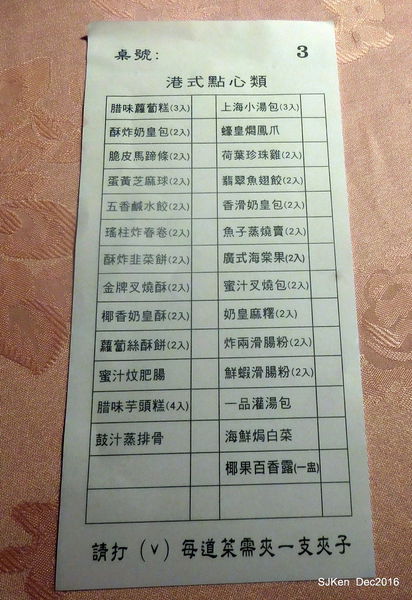 桌號: 3
港式點心類
腊味蘿蔔糕(3入) 上海小湯包(3入)
酥炸奶皇包(2入) 蠔皇燜鳳爪
脆皮馬蹄條(2入) 荷葉珍珠雞(2入)
蛋黃芝麻球(2入) 翡翠魚翅餃(2入)
五香鹹水餃(2入) 香滑奶皇包(2入)
瑤柱炸春卷(2入) 魚子蒸燒賣(2入)
酥炸韭菜餅(2入) 廣式海棠果(2入)
金牌叉燒酥(2入) 蜜汁叉燒包(2入)
椰香奶皇酥(2入) 奶皇麻糬(2入)
蘿蔔絲酥餅(2入) 炸兩滑腸粉(2入)
蜜汁炆肥腸 鮮蝦滑腸粉(2入)
腊味芋頭糕(4入) 一品灌湯包
鼓汁蒸排骨 海鮮焗白菜
椰果百香露(一盅)
請打(v)每道菜需夾一支夾子
SJKen Dec2016